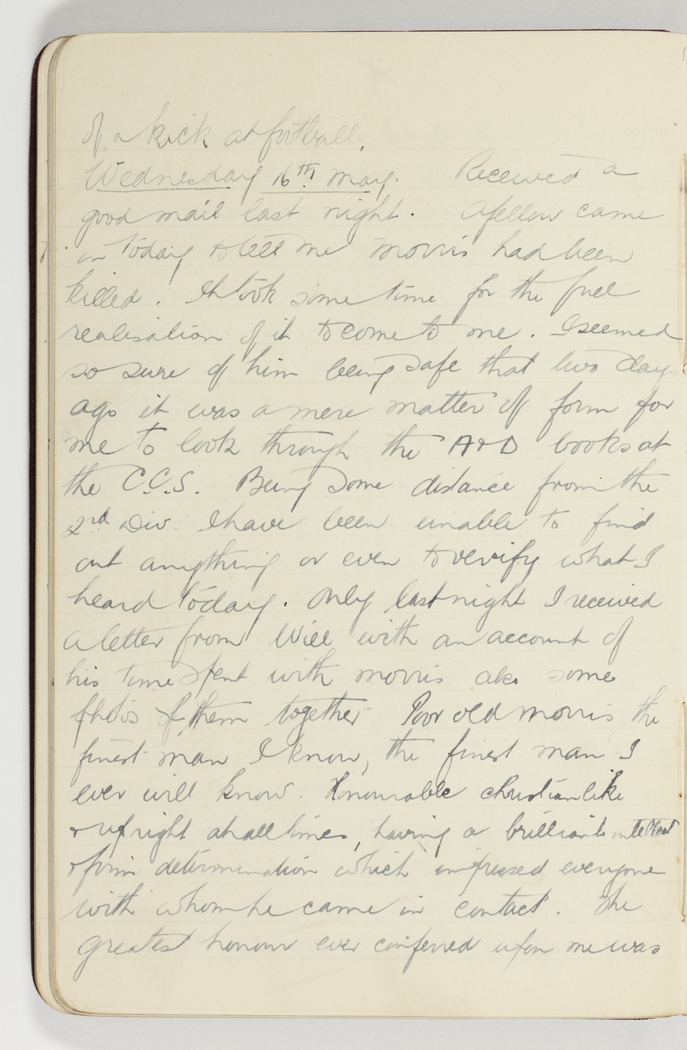 of a kick at football.
Wednesday 16th May. Received a
good mail last night. A fellow came
in today to tell me Morris had been
killed. It took some time for the full
realisation of it to come to me. I seemed
so sure of him being safe that two days
ago it was a mere matter of form for
me to look through the A & D books at
the C.C.S. Being some distance from the
2nd Div. I have been unable to find
out anything or even to verify what I
heard today. Only last night I received
a letter from Will with an account of
his time spent with Morris also some
photos of them together Poor old Morris the
finest man I know, the finest man I
ever will know. Honourable christianlike
& upright at all times, having a brilliant intellect
& firm determination which impressed everyone
with whom he came in contact. The
greatest honour ever conferred upon me was